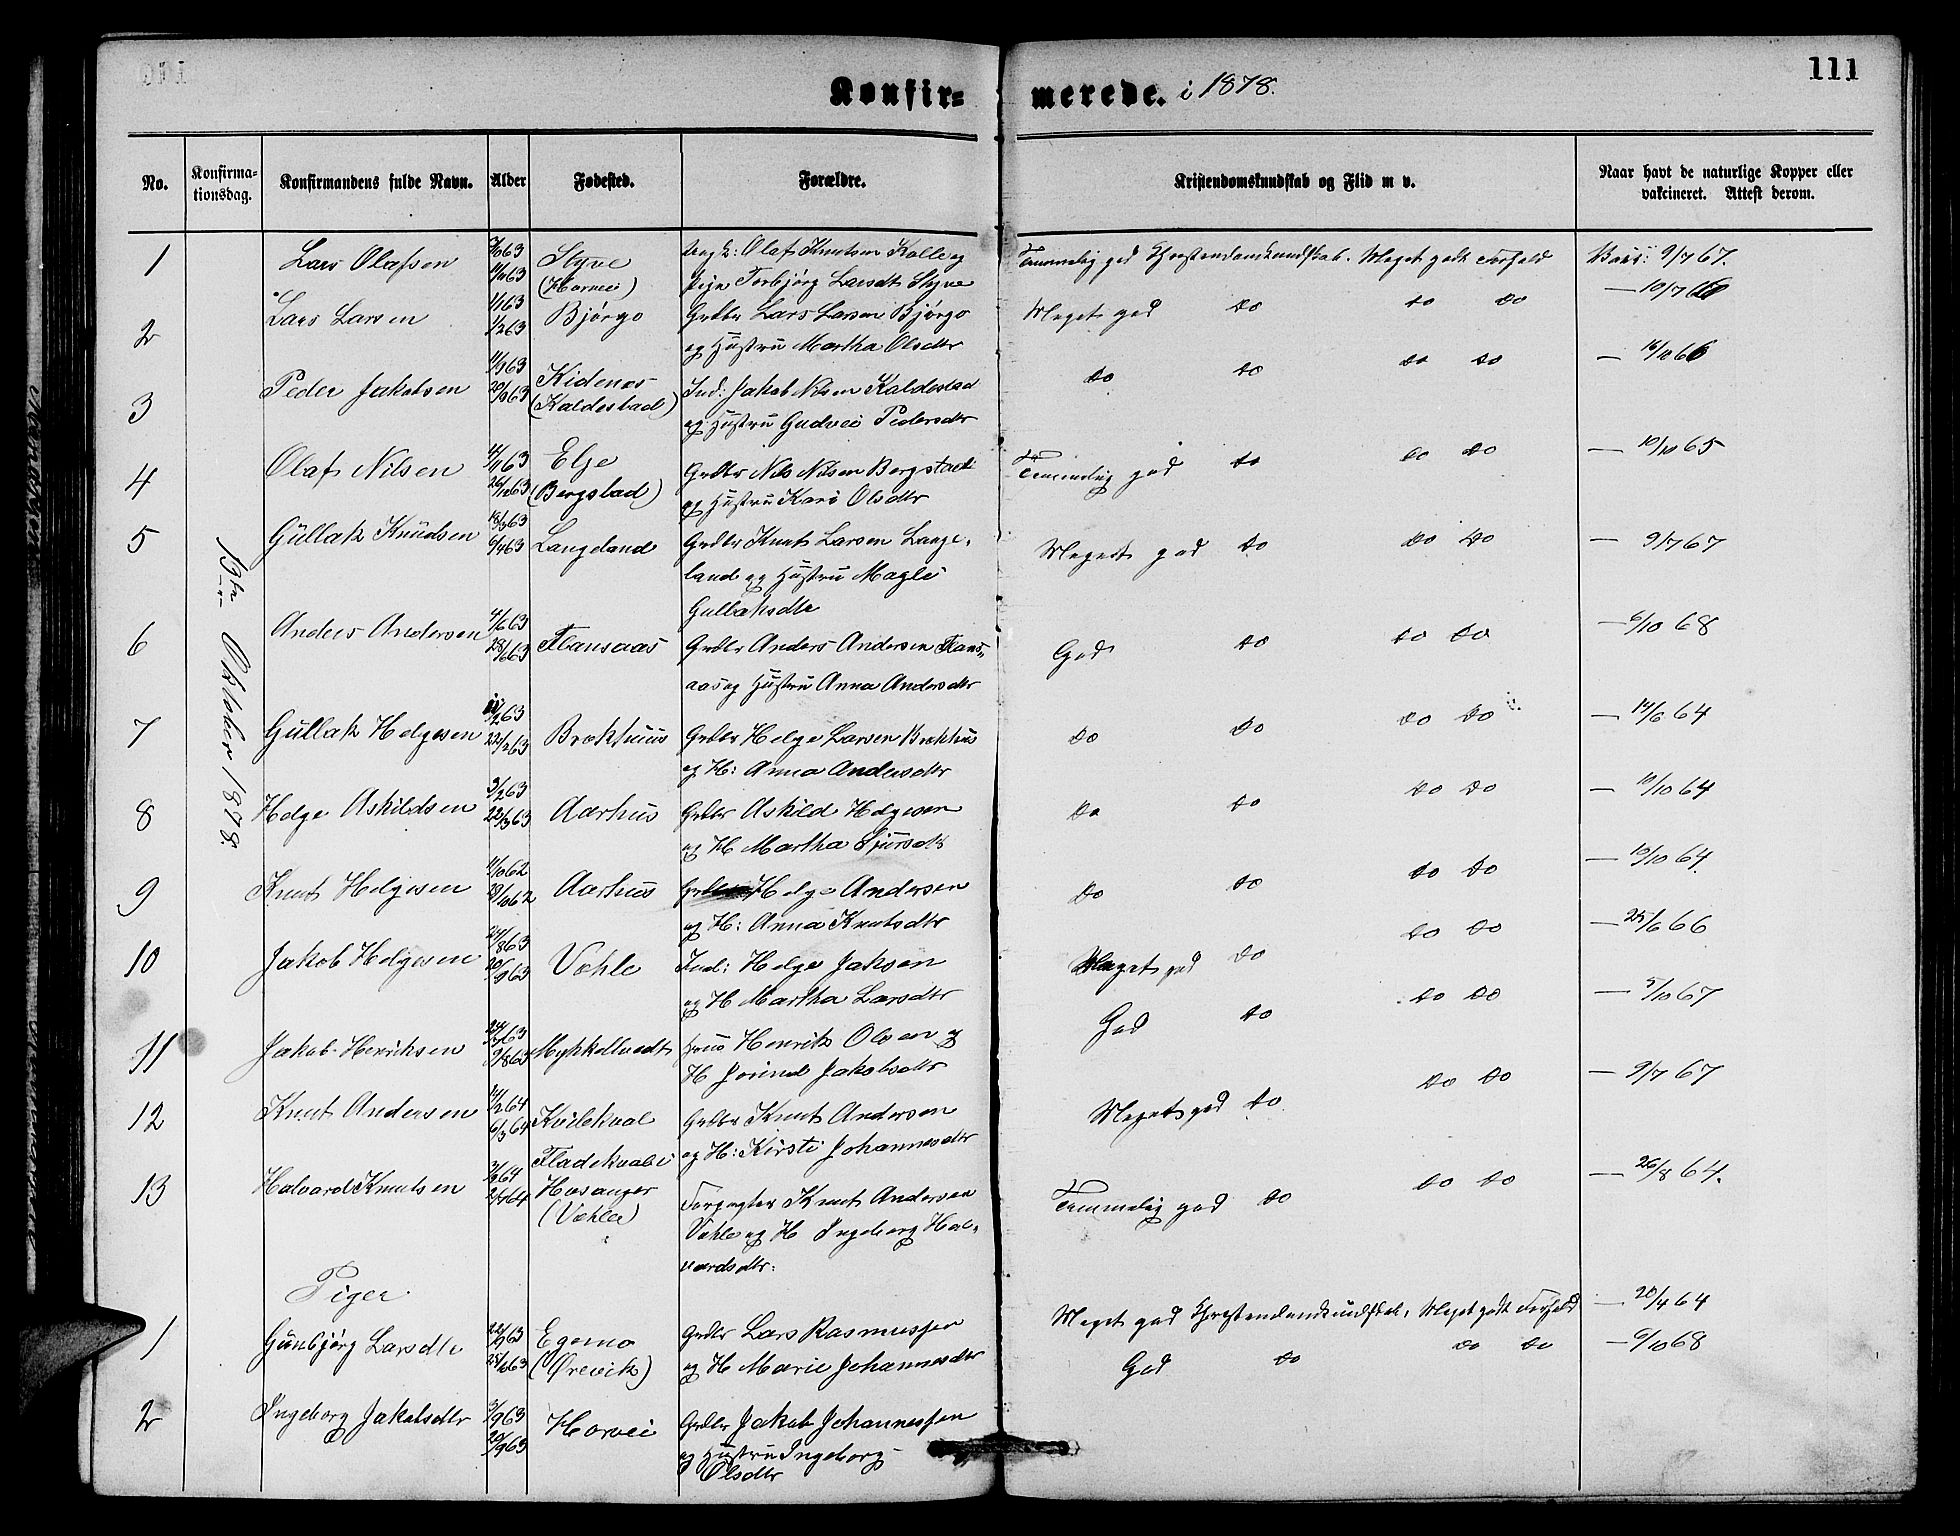 111
Konfir= merede. i 1878.
No.
Konfirma-
tionsdag.
Konfirmandens fulde Navn.
Alder
Fødested.
Forældre.
Kristendomskundskab og Flid m v.
Naar havt de naturlige Kopper eller
vakcineret. Attest derom.
13de Oktober 1878.
1 Lars Olafsen Styve Olaf Knutsen Kolle og Meget godt Forhold 9/7 67.
(Horvei) Pige Torbjørg Larsdt Styve
2 Lars Larsen 1/1 63 Bjørgo Grdbr Lars Larsen Bjørgo Meget god do do do — 10/7 66
1/2 63 og Hustru Martha Olsdtr
3 Peder Jakobsen 11/9 63 Kidenes Ind: Jakob Nilsen Kaldestad do do do do — 16/10 66
20/9 63 (Kaldestad) og Hustru Gudvei Pedersdtr
4 Olaf Nilsen 4/11 63 Elje Grdbr Nils Nilsen Bergstad Temmelig god do do do — 10/10 65
26/12 63 (Bergstad) og Hustru Kari Olsdtr
5 Gullak Knudsen 18/3 63 Langeland Grdbr Knut Larsen Lange- Meget god do do do — 9/7 67
6/4 63 land og Hustru Magli
Gullaksdtr
6 Anders Andersen 4/6 63 Flansaas Grdbr Anders Andersen Flans- God do do do — 6/10 68
28/6 63 aas og Hustru Anna Andersdtr
7 Gullak Helgesen 63 Brækhuus Grdbr Helge Larsen Brækhus do do do do — 14/6 64
22/2 63 og H: Anna Andersdtr
8 Helge Askildsen 3/2 63 Aarhus Grdbr Askild Helgesen do do do do — 19/10 64
22/3 63 og H Martha Sjursdtr
9 Knut Helgesen 11/10 62 Aarhus Helge Andersen do do do do — 19/10 64
62 og H: Anna Knutsdtr
10 Jakob Helgesen 24/8 63 Væhle Ind: Helge Jaksen Meget god do do do — 25/6 66
20/9 63 og H Martha Larsdtr
11 Jakob Henriksen 63 Mykkeltvedt Huus Henrik Olsen og God do do do — 5/10 67
9/8 63 H Jorind Jakobsdtr
12 Knut Andersen 14/2 64 Kvilekval Grdbr Knut Andersen Meget god do do do — 9/7 67
6/3 64 og H: Kirsti Johannesdtr
13 Halvard Knutsen 64 Fladekvale Forpagter Knut Andersen Temmelig god do do do — 26/8 64.
64 Hosanger Væhle og H Ingeborg Hal-
(Væhle) vardsdtr.
Piger
1 Gunbjørg Larsdtr 22/9 63 Egemo Grdbr Lars Rasmussen Meget god Christendomskundskab, Meget godt Forhold — 20/4 64
25/10 63 (Ørevik) og H Marie Johannesdtr
2 Ingeborg Jakobsdtr 3/9 63 Horvei Grdbr Jakob Johannessen God do do do — 6/10 68
20/9 63 og Hustru Ingeborg
Olsdtr